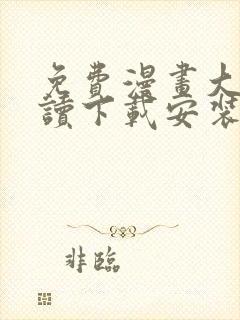 免費漫畫大
讀下載安裝
非臨